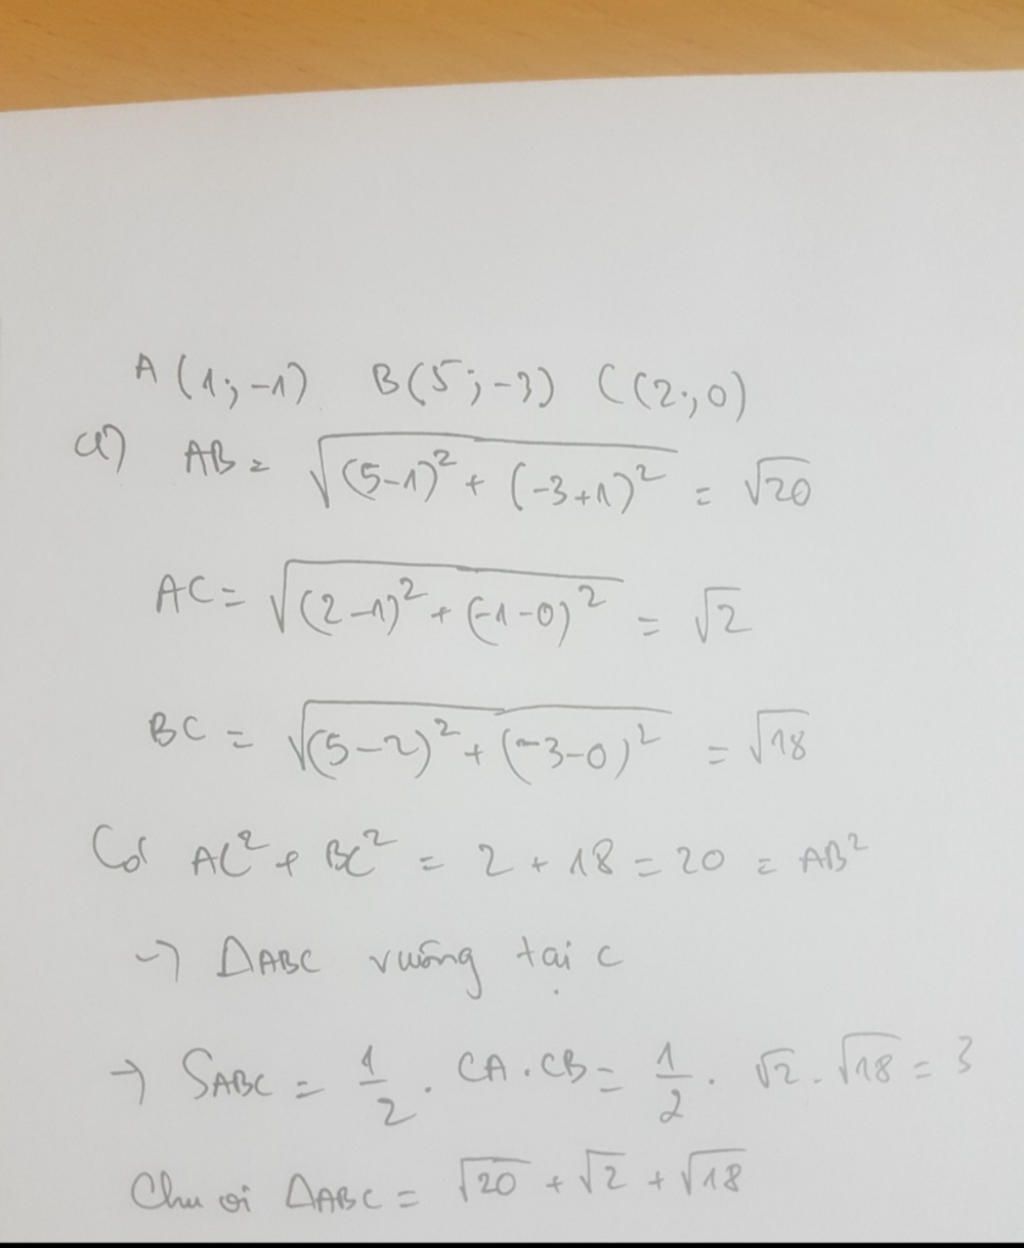 A(1;-1) B(5;-3) C(2;0)
a) AB = √((5-1)² + (-3+1)²) = √20
AC = √((2-1)² + (-1-0)²) = √2
BC = √((5-2)² + (-3-0)²) = √18
Có AC² + BC² = 2 + 18 = 20 = AB²
→ ΔABC vuông tại C
→ SABC = 1/2 . CA . CB = 1/2 . √2 . √18 = 3
Chu vi ΔABC = √20 + √2 + √18